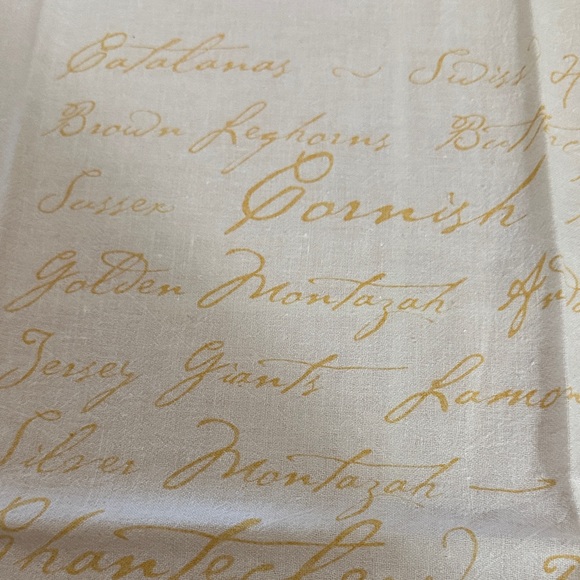 Catalanas ~ Swiss H
Brown Leghorns Butter
Sussex Cornish
Golden Montazah Ard
Jersey Giants Lamon
Silver Montazah
Chantecler